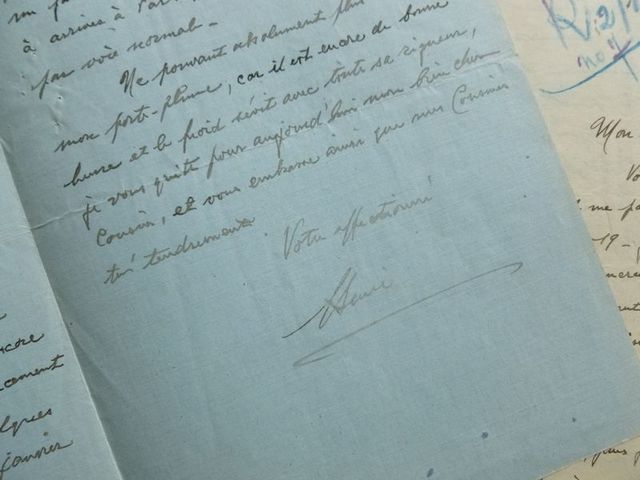 à arriver à Par
par voie normal.
Ne pouvant absolument plus
mon porte-plume, car il est encre de bonne
heure et le froid sévit avec toute sa rigueur,
je vous quitte pour aujourd'hui mon bien cher
Cousin, et vous embrasse ainsi que mes Cousines
très tendrement
Votre affectionné
Henri
core
cement
elques
janvier
R.2/
no 7
Mon
Vo
me pa
19-